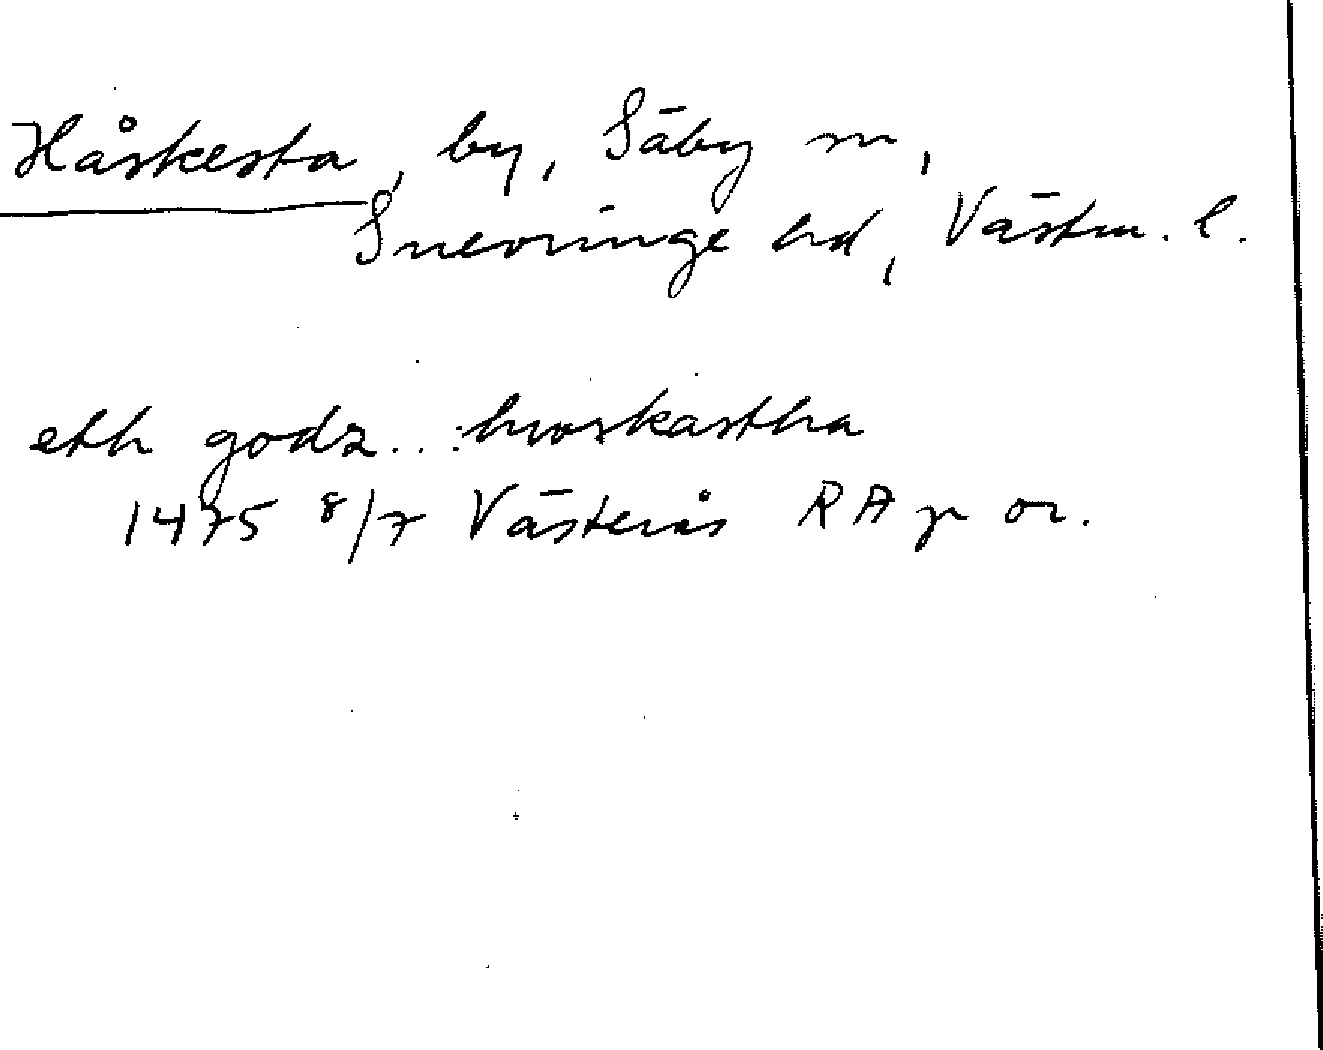 Håskesta, by, Säby sn,
Snevringe hd, Västm. l.
eth godz... hwoskastha
1475 8/7 Västerås RA p or.